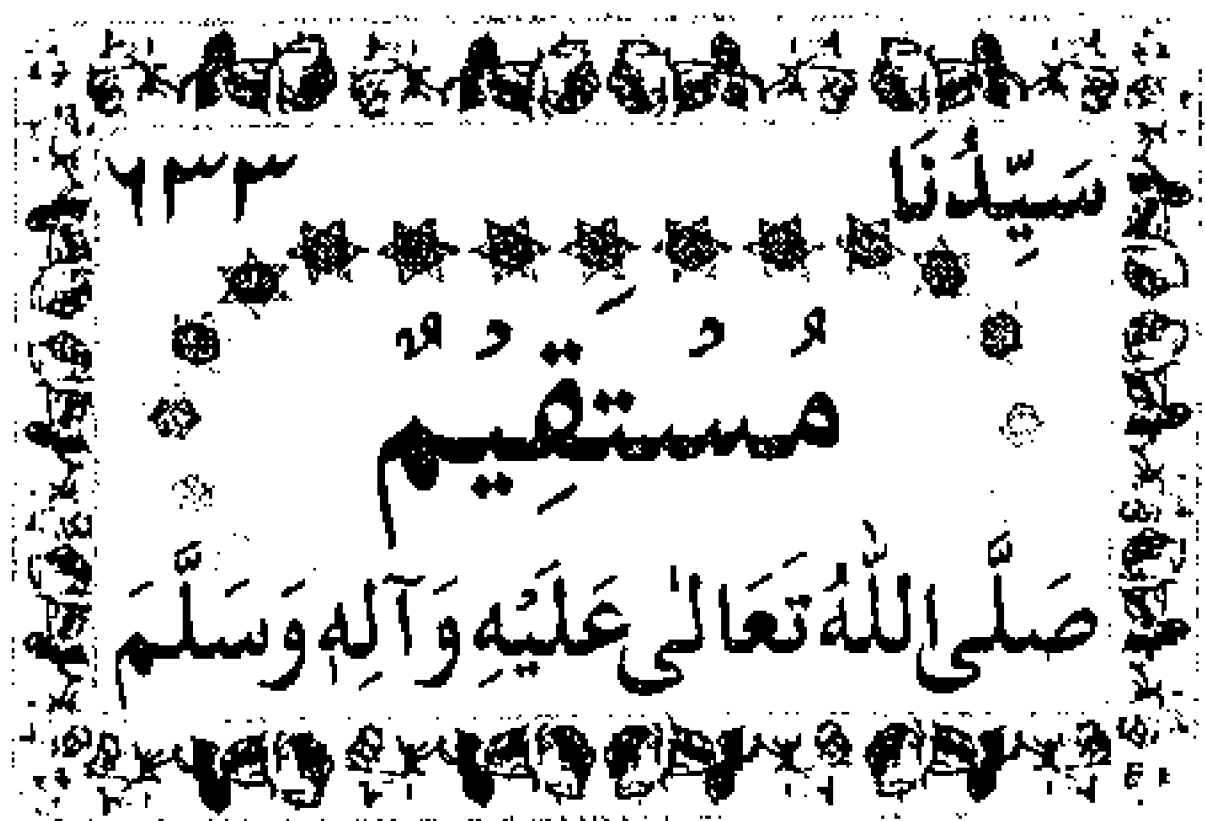 سَيِّدُنَا ٦٣٣
مُسْتَقِيْمٌ
صَلَّى اللّٰهُ تَعَالٰى عَلَيْهِ وَآلِهٖ وَسَلَّمَ